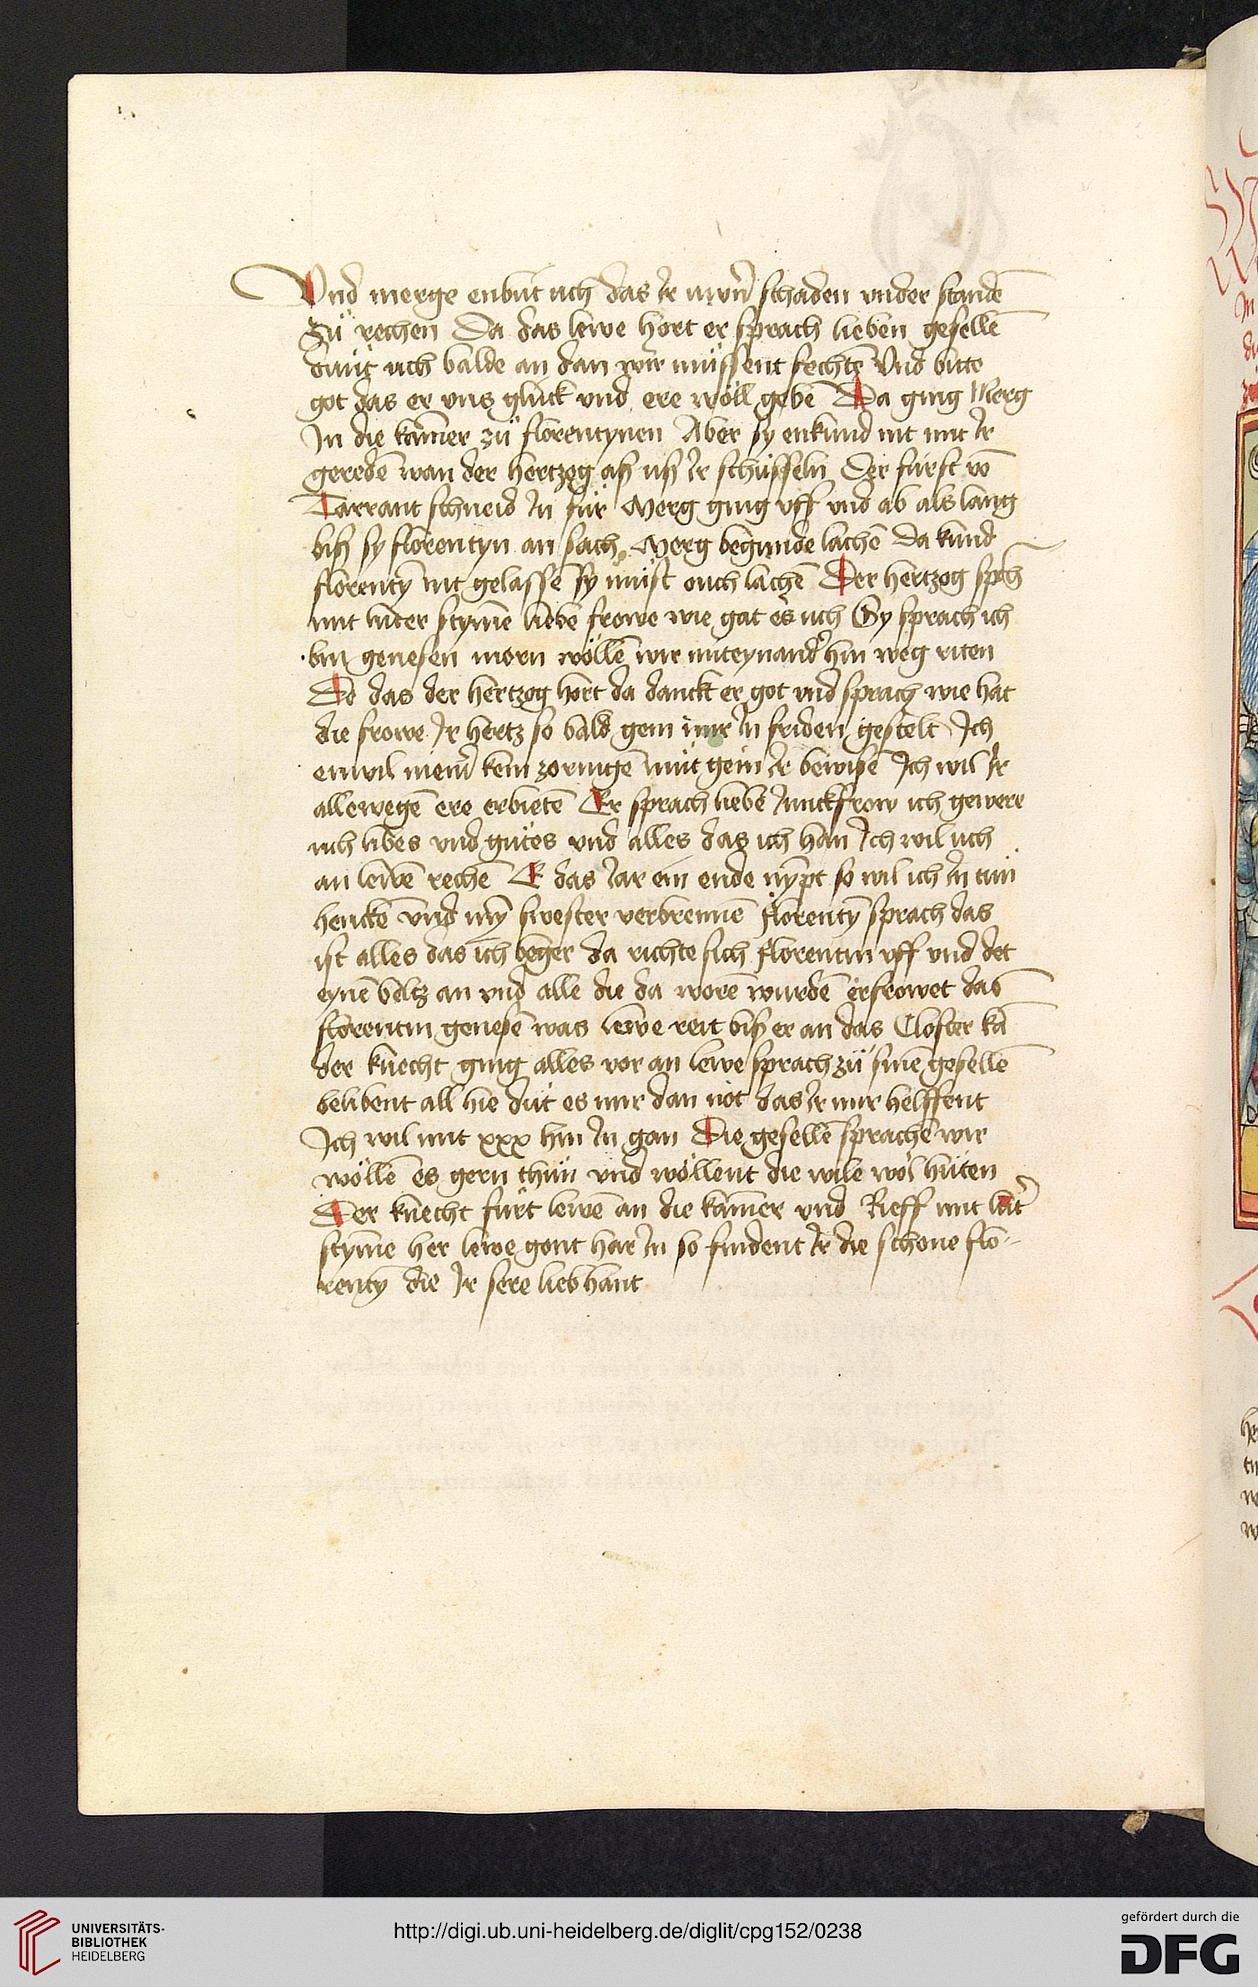 Vnd merge enbut uch das Ir uwern̄ schaden vnder stande
zü rechen Da das lewe hort er sprach lieben geselle͞
dünt uch balde an dan wir müssent fechte͞ Vnd bitte
got das er vns glück vnd ere wöll gebe͞ Da ging Merg
In die kamer zü florentynen Aber sy enkund nit mit Ir
gerede͞ wan der hertzog aß uß Ir schüsseln Der fürst vo͞
Tarrant schneid In für Merg ging uff vnd ab als lang
biß sy florentyn an sach Merg begunde lache͞ Da kund
florenty͞ nit gelasse͞ sy müst ouch lache͞ Der hertzog sp͞ch
mit luter styme͞ liebe͞ frowe wie gat es uch Sy sprach ich
bin genesen morn wölle͞ wir miteynand͛ hin weg riten
Do das der hertzog hort da danckt er got vnd sprach wie hat
die frowe Ir hertz so bald gein mir In friden gestelt Ich
enwil niem͛ kein zornige͞ müt gein Ir bewyse͞ Ich wil Ir
allewege͞ ere erbiete͞ Er sprach liebe͞ Junckfrow ich gewere
uch libes vnd gütes vnd alles das ich han Ich wil uch
an lewe͞ reche͞ E das Jar ein ende ny͞pt so wil ich In tün
hencke͞ vnd my͞ swester verbrenne͞ florenty͞ sprach das
ist alles das ich beger da richte sich florentin uff vnd det
eyne͞ beltz an vnd alle die da wore͞ wurde͞ erfrowet das
florentin genese͞ was lewe reit biß er an das Closter ka͞
der knecht ging alles vor an lewe sprach zü sine͞ geselle͞
belibent all hie düt es mir dan not das Ir mir helffent
Ich wil mit xxx hin In gan Die geselle͞ sprache͞ wir
wölle͞ es gern thün vnd wöllent die wile wol hüten
Der knecht fürt lewe͞ an die kamer vnd Rieff mit lut͛
styme her lewe gont har In so findent Ir die schone flo-
renty͞ die Ir sere lieb hant
UNIVERSITÄTS-
BIBLIOTHEK
HEIDELBERG
http://digi.ub.uni-heidelberg.de/diglit/cpg152/0238
gefördert durch die
DFG